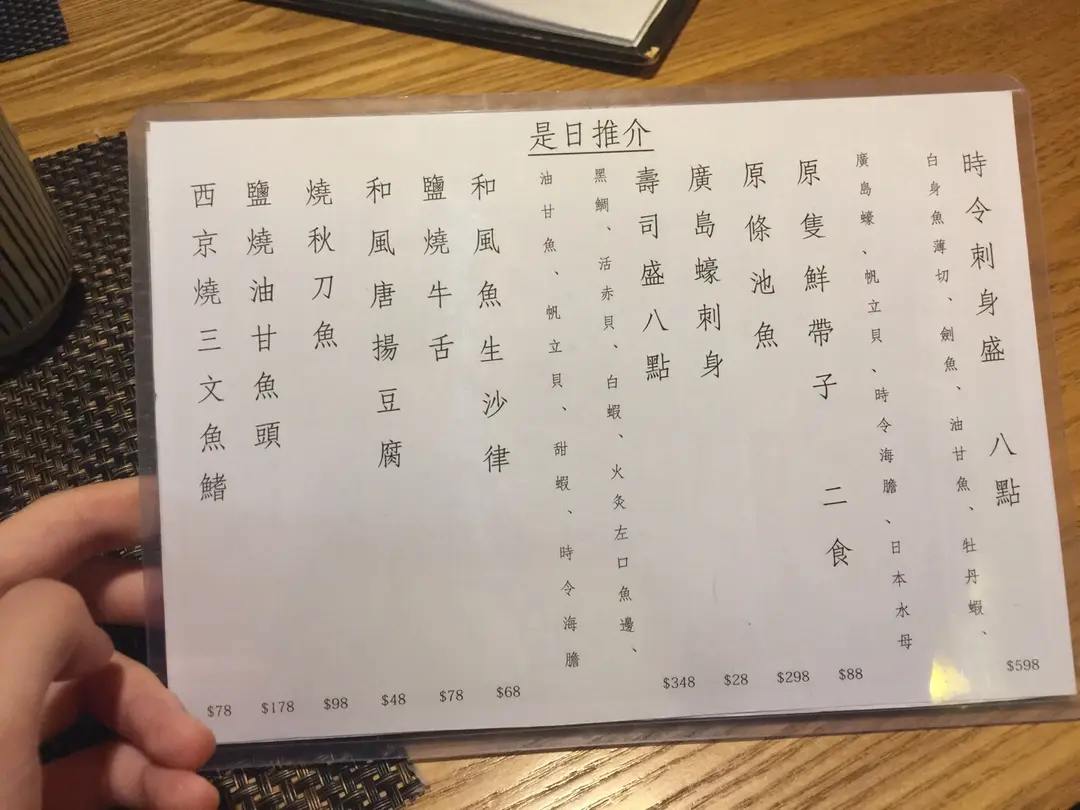 是日推介
時令刺身盛 八點
$598
白身魚薄切、劍魚、油甘魚、牡丹蝦、
廣島蠔、帆立貝、時令海膽、日本水母
原隻鮮帶子 二食
$88
原條池魚
$298
廣島蠔刺身
$28
壽司盛八點
$348
黑鯛、活赤貝、白蝦、火灸左口魚邊、
油甘魚、帆立貝、甜蝦、時令海膽
和風魚生沙律
$68
鹽燒牛舌
$78
和風唐揚豆腐
$48
燒秋刀魚
$98
鹽燒油甘魚頭
$178
西京燒三文魚鰭
$78